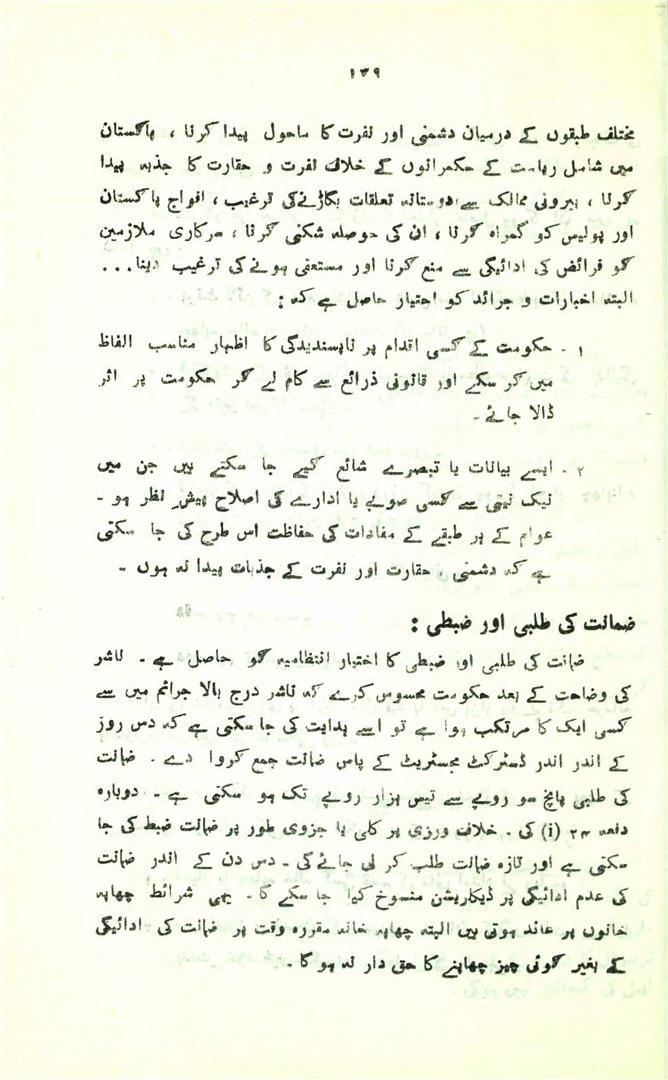 ۱۳۹
مختلف طبقوں کے درمیان دشمنی اور نفرت کا ماحول پیدا کرنا ، پاکستان
میں شامل ریاست کے حکمرانوں کے خلاف نفرت و حقارت کا جذبہ پیدا
کرنا ، بیرونی ممالک سے دوستانہ تعلقات بگاڑنےکی ترغیب ، افواج پاکستان
اور پولیس کو گمراہ کرنا ، ان کی حوصلہ شکنی کرنا ، سرکاری ملازمین
کو فرائض کی ادائیگی سے منع کرنا اور مستعفی ہونے کی ترغیب دینا...
البتہ اخبارات و جرائد کو اختیار حاصل ہے کہ :
۱ - حکومت کے کسی اقدام پر ناپسندیدگی کا اظہار مناسب الفاظ
میں کر سکے اور قانونی ذرائع سے کام لے کر حکومت پر اثر
ڈالا جائے۔
۲ - ایسے بیانات یا تبصرے شائع کیے جا سکتے ہیں جن میں
نیک نیتی سے کسی صوبے یا ادارے کی اصلاح پیش نظر ہو -
عوام کے ہر طبقے کے مفادات کی حفاظت اس طرح کی جا سکتی
ہے کہ دشمنی ، حقارت اور نفرت کے جذبات پیدا نہ ہوں -
ضمانت کی طلبی اور ضبطی :
ضمانت کی طلبی اور ضبطی کا اختیار انتظامیہ کو حاصل ہے - ناشر
کی وضاحت کے بعد حکومت محسوس کرے کہ ناشر درج بالا جرائم میں سے
کسی ایک کا مرتکب ہوا ہے تو اسے ہدایت کی جا سکتی ہے کہ دس روز
کے اندر اندر ڈسٹرکٹ مجسٹریٹ کے پاس ضمانت جمع کروا دے - ضمانت
کی طلبی پانچ سو روپے سے تیس ہزار روپے تک ہو سکتی ہے - دوبارہ
دفعہ ۲۴ (i) کی - خلاف ورزی پر کلی یا جزوی طور پر ضمانت ضبط کی جا
سکتی ہے اور تازہ ضمانت طلب کر لی جائے گی - دس دن کے اندر ضمانت
کی عدم ادائیگی پر ڈیکلریشن منسوخ کیا جا سکے گا - یہی شرائط چھاپہ
خانوں پر عائد ہوتی ہیں البتہ چھاپہ خانہ مقررہ وقت پر ضمانت کی ادائیگی
کے بغیر کوئی چیز چھاپنے کا حق دار نہ ہو گا -